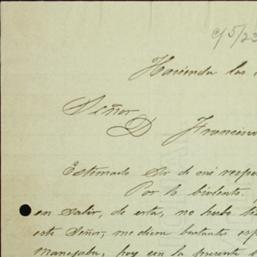 c/5/23
Hacienda las
Señor
D Francisco
Estimado Sr de mi resp
Por lo
en salir, de esta, no hubo
este Señor, me diera bastante esp
manejaba, hoy en la presente